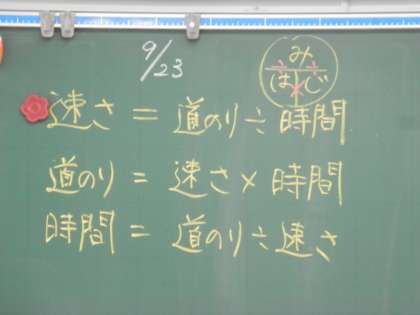 9/23
み
は じ
速さ = 道のり ÷ 時間
道のり = 速さ × 時間
時間 = 道のり ÷ 速さ